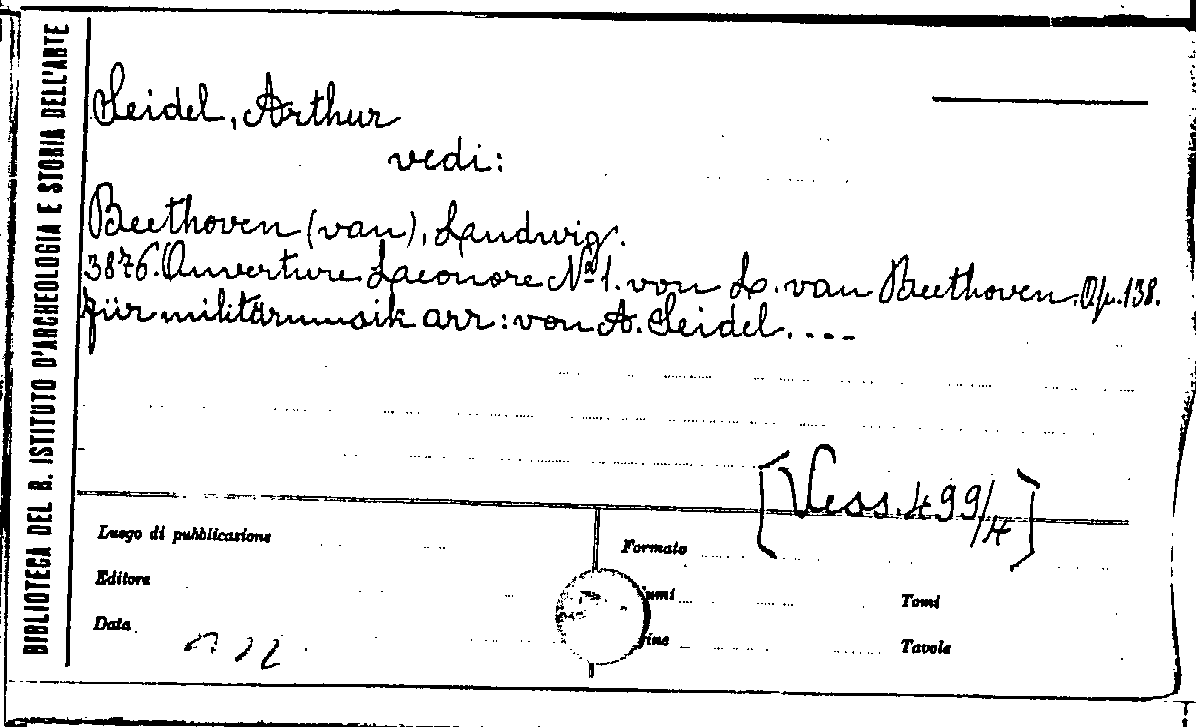 BIBLIOTECA DEL R. ISTITUTO D'ARCHEOLOGIA E STORIA DELL'ARTE
Seidel, Arthur
vedi:
Beethoven (van), Landwig.
3876. Ouverture Leonore Nº 1. von L. van Beethoven. Op. 138.
für militärmusik arr: von A. Seidel. ...
[Vess. 499/4]
Luogo di pubblicazione
Formato
Editore
Tomi
Data
Tavole